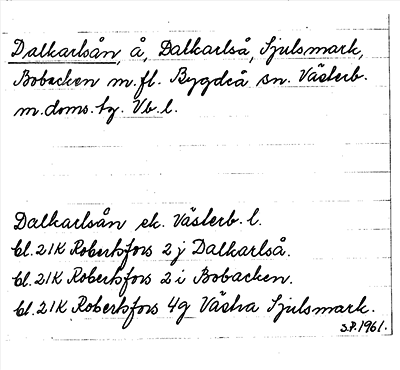 Dalkarlsån, å, Dalkarlså, Sjulsmark,
Bobacken m.fl. Bygdeå sn. Västerb.
m.doms.tg. Vb.l.
Dalkarlsån ek. Västerb.l.
bl.21K Robertsfors 2 j Dalkarlså.
bl.21K Robertsfors 2 i Bobacken.
bl.21K Robertsfors 4g Västra Sjulsmark.
S.P.1961.